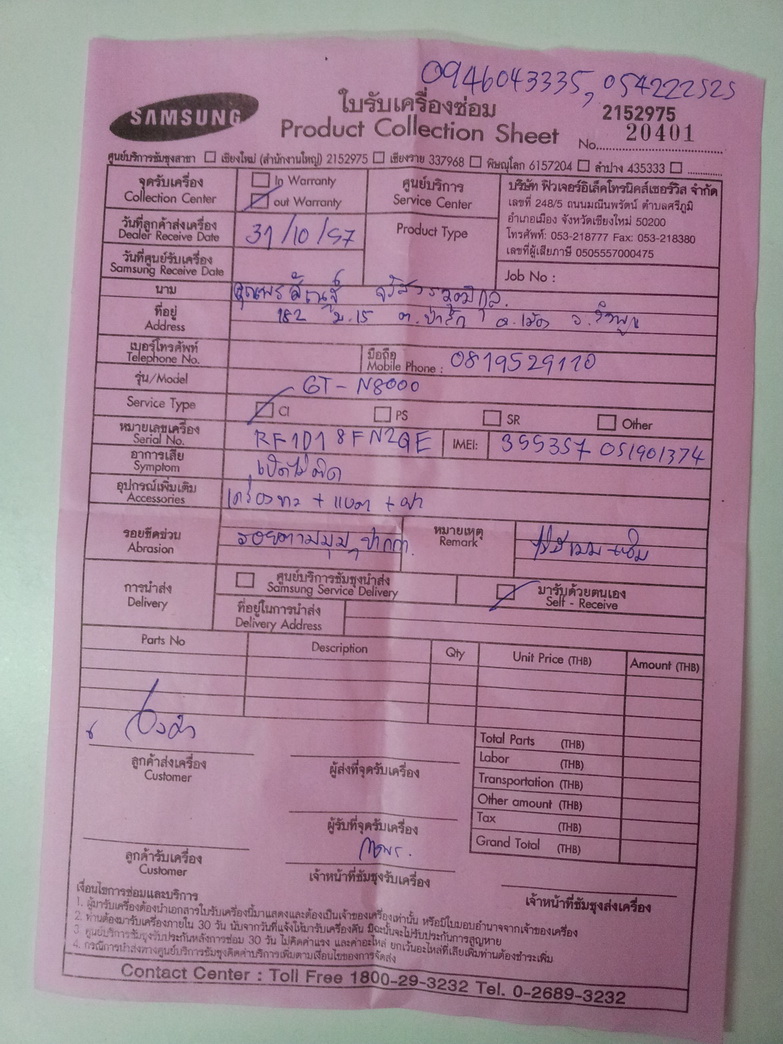 0946043335, 054222525
SAMSUNG
ใบรับเครื่องซ่อม
Product Collection Sheet
2152975
No. 20401
ศูนย์บริการซัมซุงสาขา เชียงใหม่ (สำนักงานใหญ่) 2152975 เชียงราย 337968 พิษณุโลก 6157204 ลำปาง 435333
จุดรับเครื่อง
Collection Center
In Warranty
out Warranty
ศูนย์บริการ
Service Center
บริษัท ฟิวเจอร์อิเล็คโทรนิคส์เซอร์วิส จำกัด
เลขที่ 248/5 ถนนมณีนพรัตน์ ตำบลศรีภูมิ
อำเภอเมือง จังหวัดเชียงใหม่ 50200
โทรศัพท์: 053-218777 Fax: 053-218380
เลขที่ผู้เสียภาษี 0505557000475
วันที่ลูกค้าส่งเครื่อง
Dealer Receive Date
31/10/57
Product Type
วันที่ศูนย์รับเครื่อง
Samsung Receive Date
Job No :
นาม
ที่อยู่
Address
182 ม.15 ต.ป่าสัก อ.เมือง จ.ลำพูน
เบอร์โทรศัพท์
Telephone No.
มือถือ
Mobile Phone : 0819529110
รุ่น/Model
GT-N8000
Service Type
CI
PS
SR
Other
หมายเลขเครื่อง
Serial No.
RF1D18FN2QE
IMEI:
355357 051901374
อาการเสีย
Symptom
เปิดไม่ติด
อุปกรณ์เพิ่มเติม
Accessories
รอยขีดข่วน
Abrasion
หมายเหตุ
Remark
การนำส่ง
Delivery
ศูนย์บริการซัมซุงนำส่ง
Samsung Service Delivery
มารับด้วยตนเอง
Self - Receive
ที่อยู่ในการนำส่ง
Delivery Address
Parts No
Description
Qty
Unit Price (THB)
Amount (THB)
Total Parts (THB)
Labor (THB)
Transportation (THB)
Other amount (THB)
Tax (THB)
Grand Total (THB)
ลูกค้าส่งเครื่อง
Customer
ผู้ส่งที่จุดรับเครื่อง
ผู้รับที่จุดรับเครื่อง
ลูกค้ารับเครื่อง
Customer
เจ้าหน้าที่ซัมซุงรับเครื่อง
เจ้าหน้าที่ซัมซุงส่งเครื่อง
เงื่อนไขการซ่อมและบริการ
1. ผู้มารับเครื่องต้องนำเอกสารใบรับเครื่องนี้มาแสดงและต้องเป็นเจ้าของเครื่องเท่านั้น หรือมีใบมอบอำนาจจากเจ้าของเครื่อง
2. ท่านต้องมารับเครื่องภายใน 30 วัน นับจากวันที่แจ้งให้มารับเครื่องคืน มิฉะนั้นจะไม่รับประกันการสูญหาย
3. ศูนย์บริการซัมซุงรับประกันหลังการซ่อม 30 วัน ไม่คิดค่าแรง และค่าอะไหล่ ยกเว้นอะไหล่ที่เสียเพิ่มท่านต้องชำระเพิ่ม
4. กรณีการนำส่งทางศูนย์บริการซัมซุงคิดค่าบริการเพิ่มตามเงื่อนไขของการจัดส่ง
Contact Center : Toll Free 1800-29-3232 Tel. 0-2689-3232